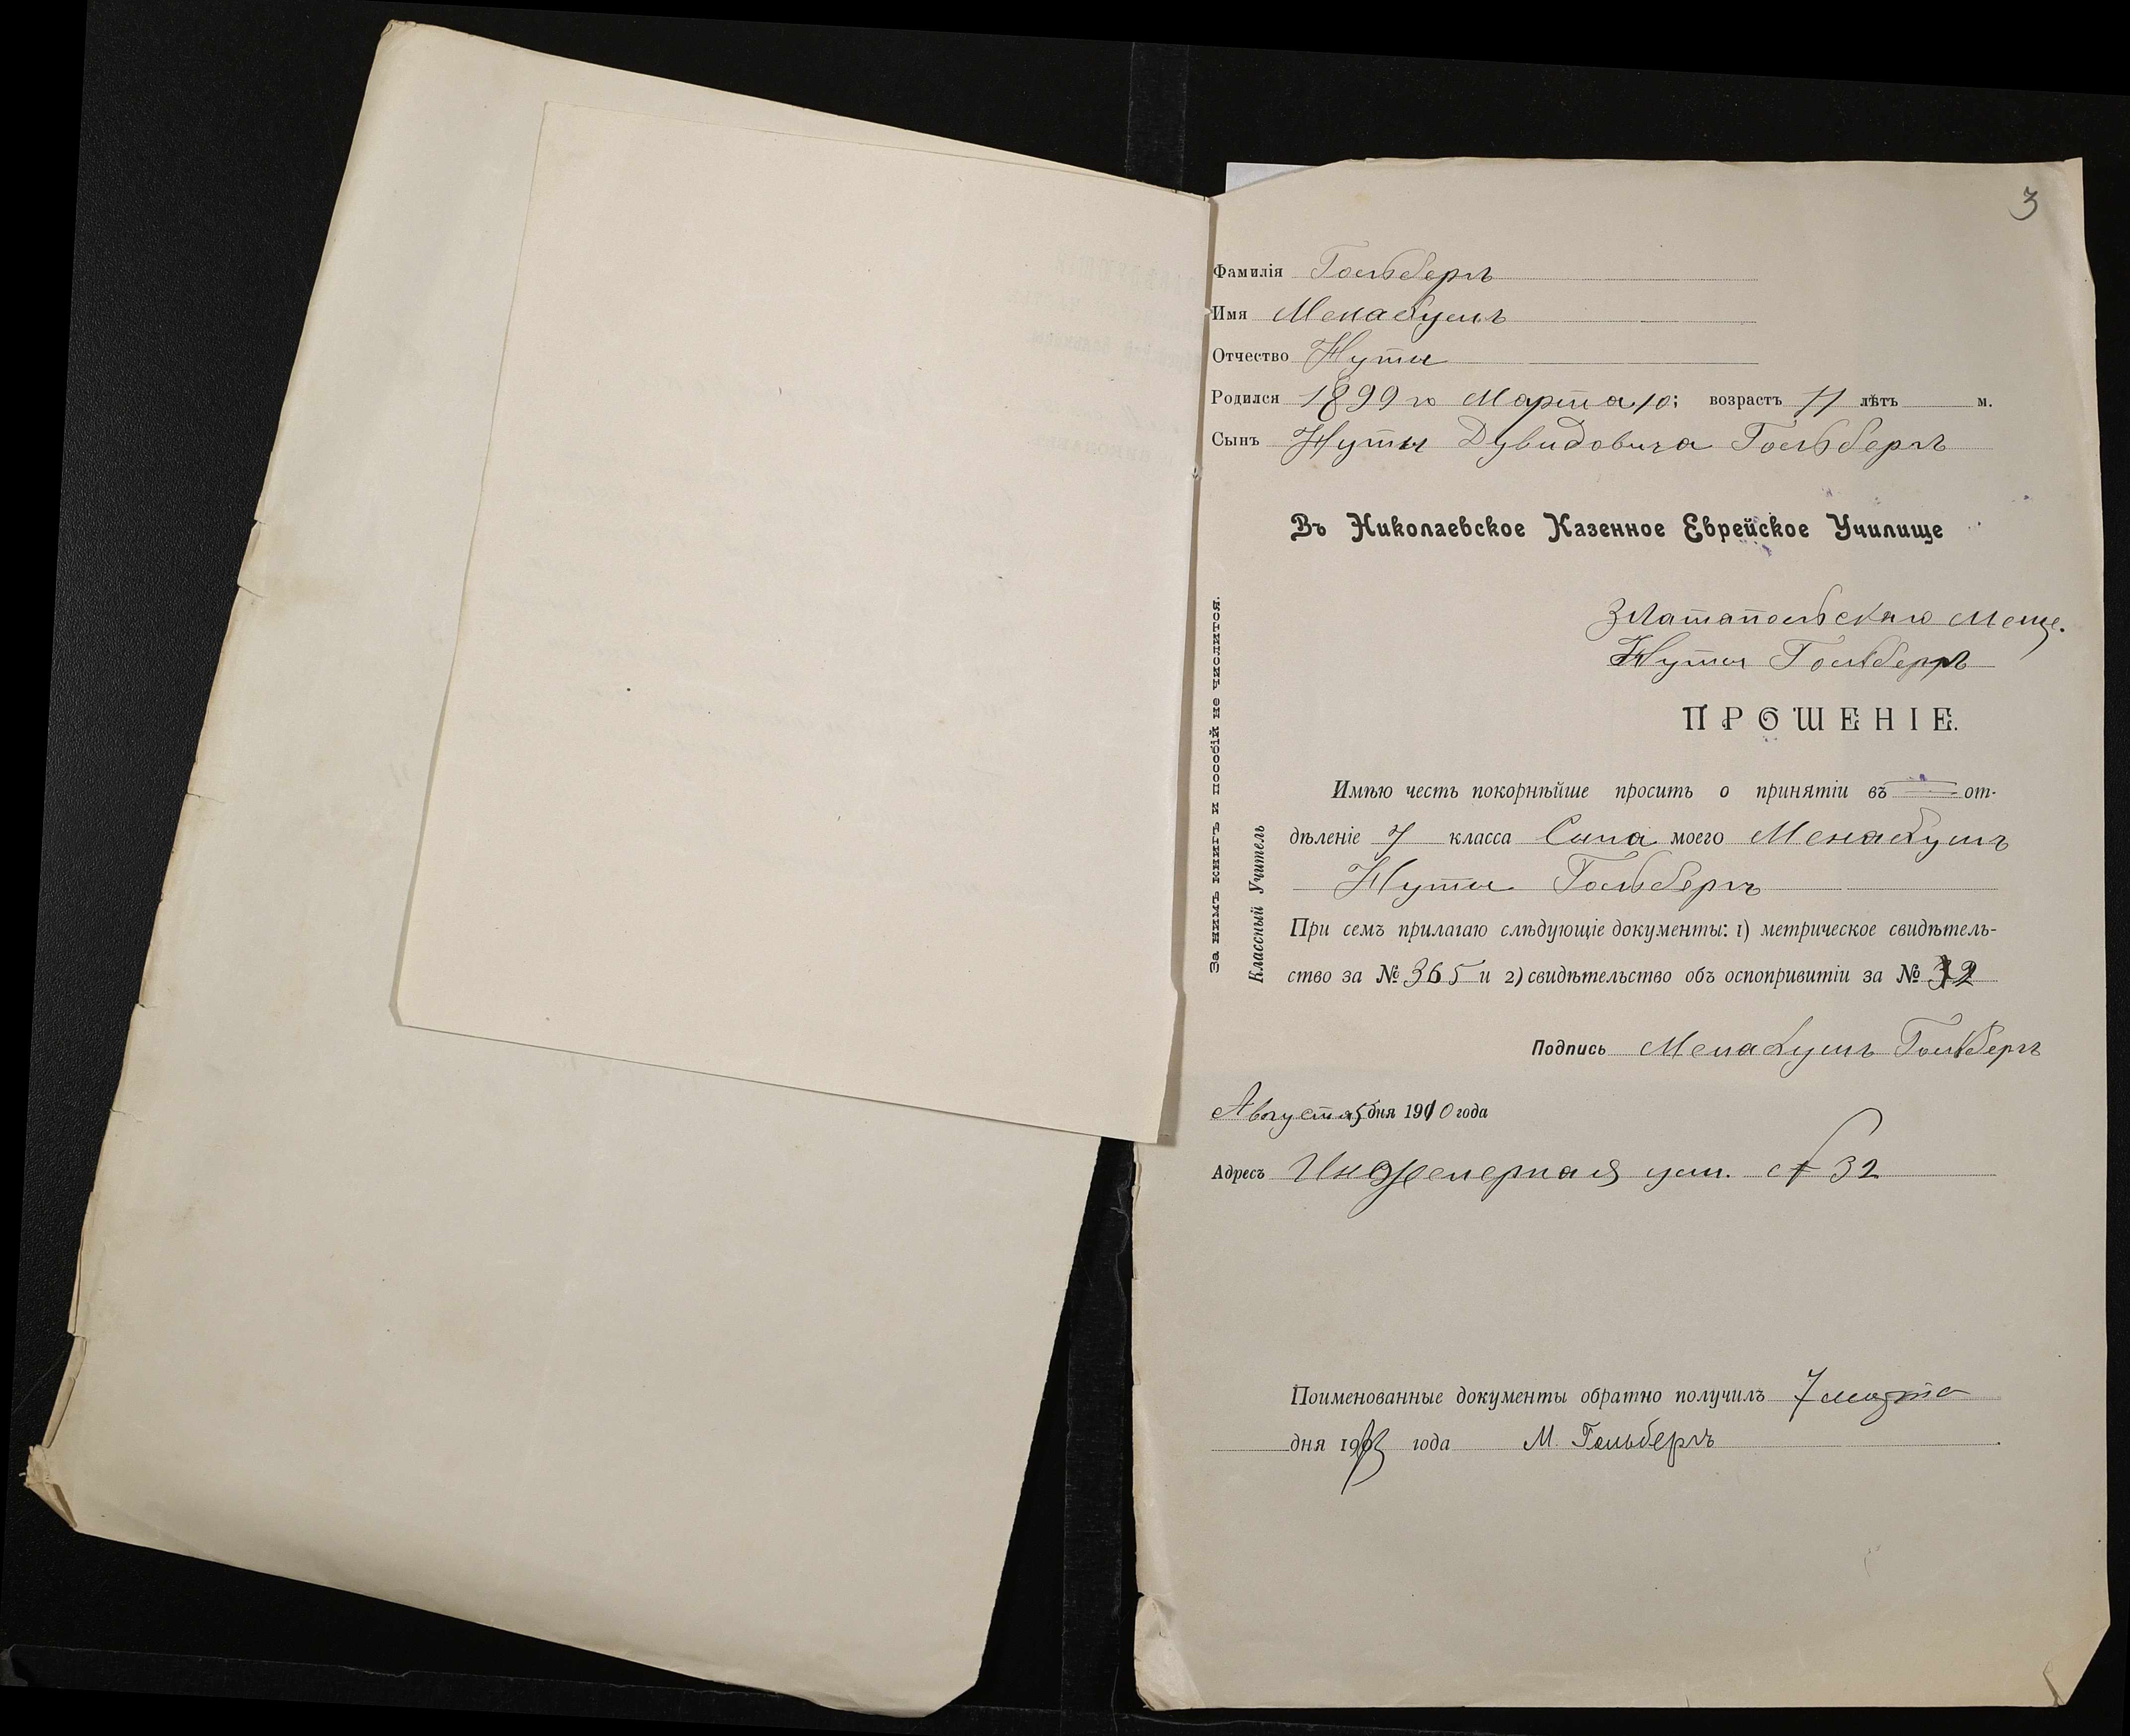 3
Фамилія Гольбергъ
Имя Менахумъ
Отчество Нуты
Родился 1899 го Марта 10; возрастъ 11 лѣтъ м.
Сынъ Нуты Дувидовича Гольбергъ
Въ Николаевское Казенное Еврейское Училище
Златапольскаго Меще.
Нуты Гольбергъ
ПРОШЕНІЕ.
Имѣю честь покорнѣйше просить о принятіи въ от-
дѣленіе 1 класса Сына моего Менахумъ
Нуты Гольбергъ
При семъ прилагаю слѣдующіе документы: 1) метрическое свидѣтель-
ство за № 365 и 2) свидѣтельство объ оспопривитіи за № 32
Подпись Менахумъ Гольбергъ
Августа 5 дня 1910 года
Адресъ Инженерная ул. № 32
Поименованные документы обратно получилъ 7 марта
дня 191 года М. Гольбергъ
За нимъ книгъ и пособій не числится.
Классный Учитель